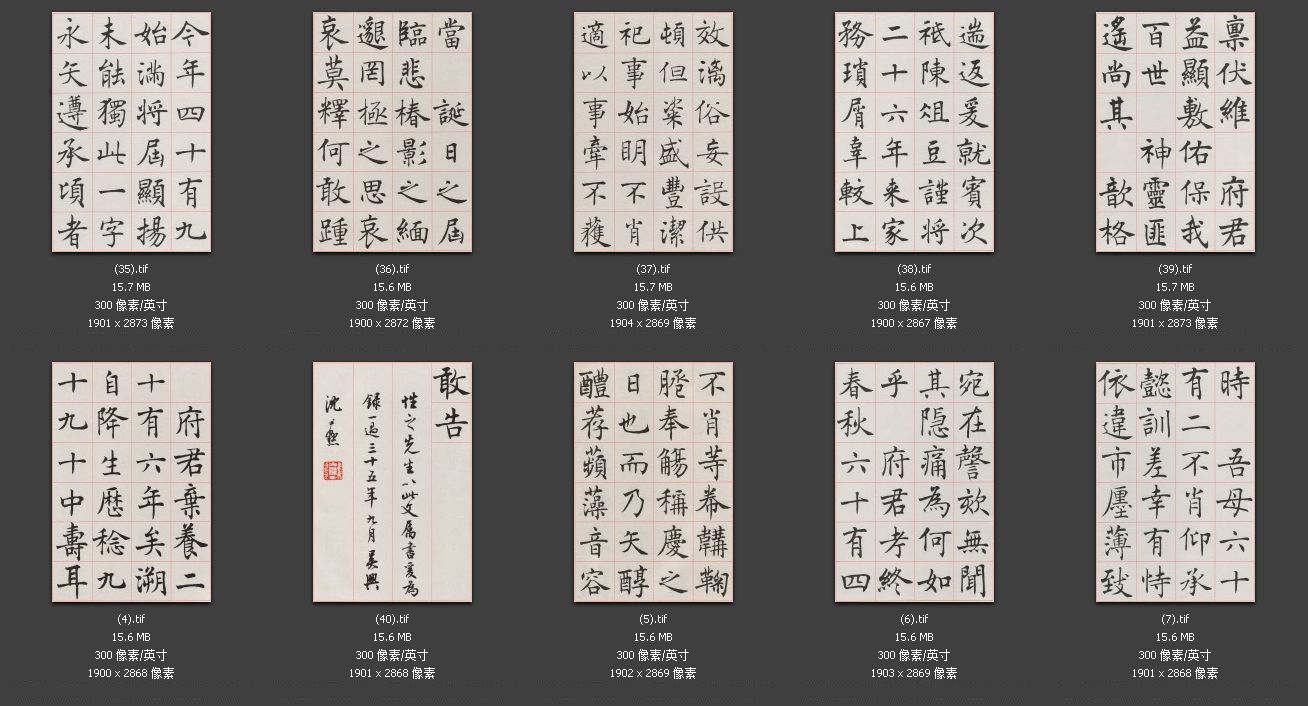 今年四十有九
始滿将屆顯揚
未能獨此一字
永矢遵承頃者
(35).tif
15.7 MB
300 像素/英寸
1901 x 2873 像素
當 誕日之屆
臨悲椿影之緬
邈罔極之思哀
哀莫釋何敢踵
(36).tif
15.6 MB
300 像素/英寸
1900 x 2872 像素
效漓俗妄設供
頓但粢盛豐潔
祀事始明不肖
適以事牽不獲
(37).tif
15.7 MB
300 像素/英寸
1904 x 2869 像素
遄返爰就賓次
祇陳俎豆謹将
二十六年来家
務瑣屑辜較上
(38).tif
15.6 MB
300 像素/英寸
1900 x 2867 像素
稟伏維 府君
益顯敷佑保我
百世 神靈匪
遙尚其 歆格
(39).tif
15.7 MB
300 像素/英寸
1901 x 2873 像素
府君棄養二
十有六年矣溯
自降生歷稔九
十九十中壽耳
(4).tif
15.6 MB
300 像素/英寸
1900 x 2868 像素
敢告
性之先生以此文属書爰為
録一過三十五年九月吳興
沈尹默
(40).tif
15.6 MB
300 像素/英寸
1901 x 2868 像素
不肖等帣韝鞠
奉觴稱慶之
日也而乃矢醇
醴荐蘋藻音容
(5).tif
15.6 MB
300 像素/英寸
1902 x 2869 像素
宛在謦欬無聞
其隱痛為何如
乎 府君考終
春秋六十有四
(6).tif
15.6 MB
300 像素/英寸
1903 x 2869 像素
時 吾母六十
有二不肖仰承
懿訓差幸有恃
依違市廛薄致
(7).tif
15.6 MB
300 像素/英寸
1901 x 2868 像素